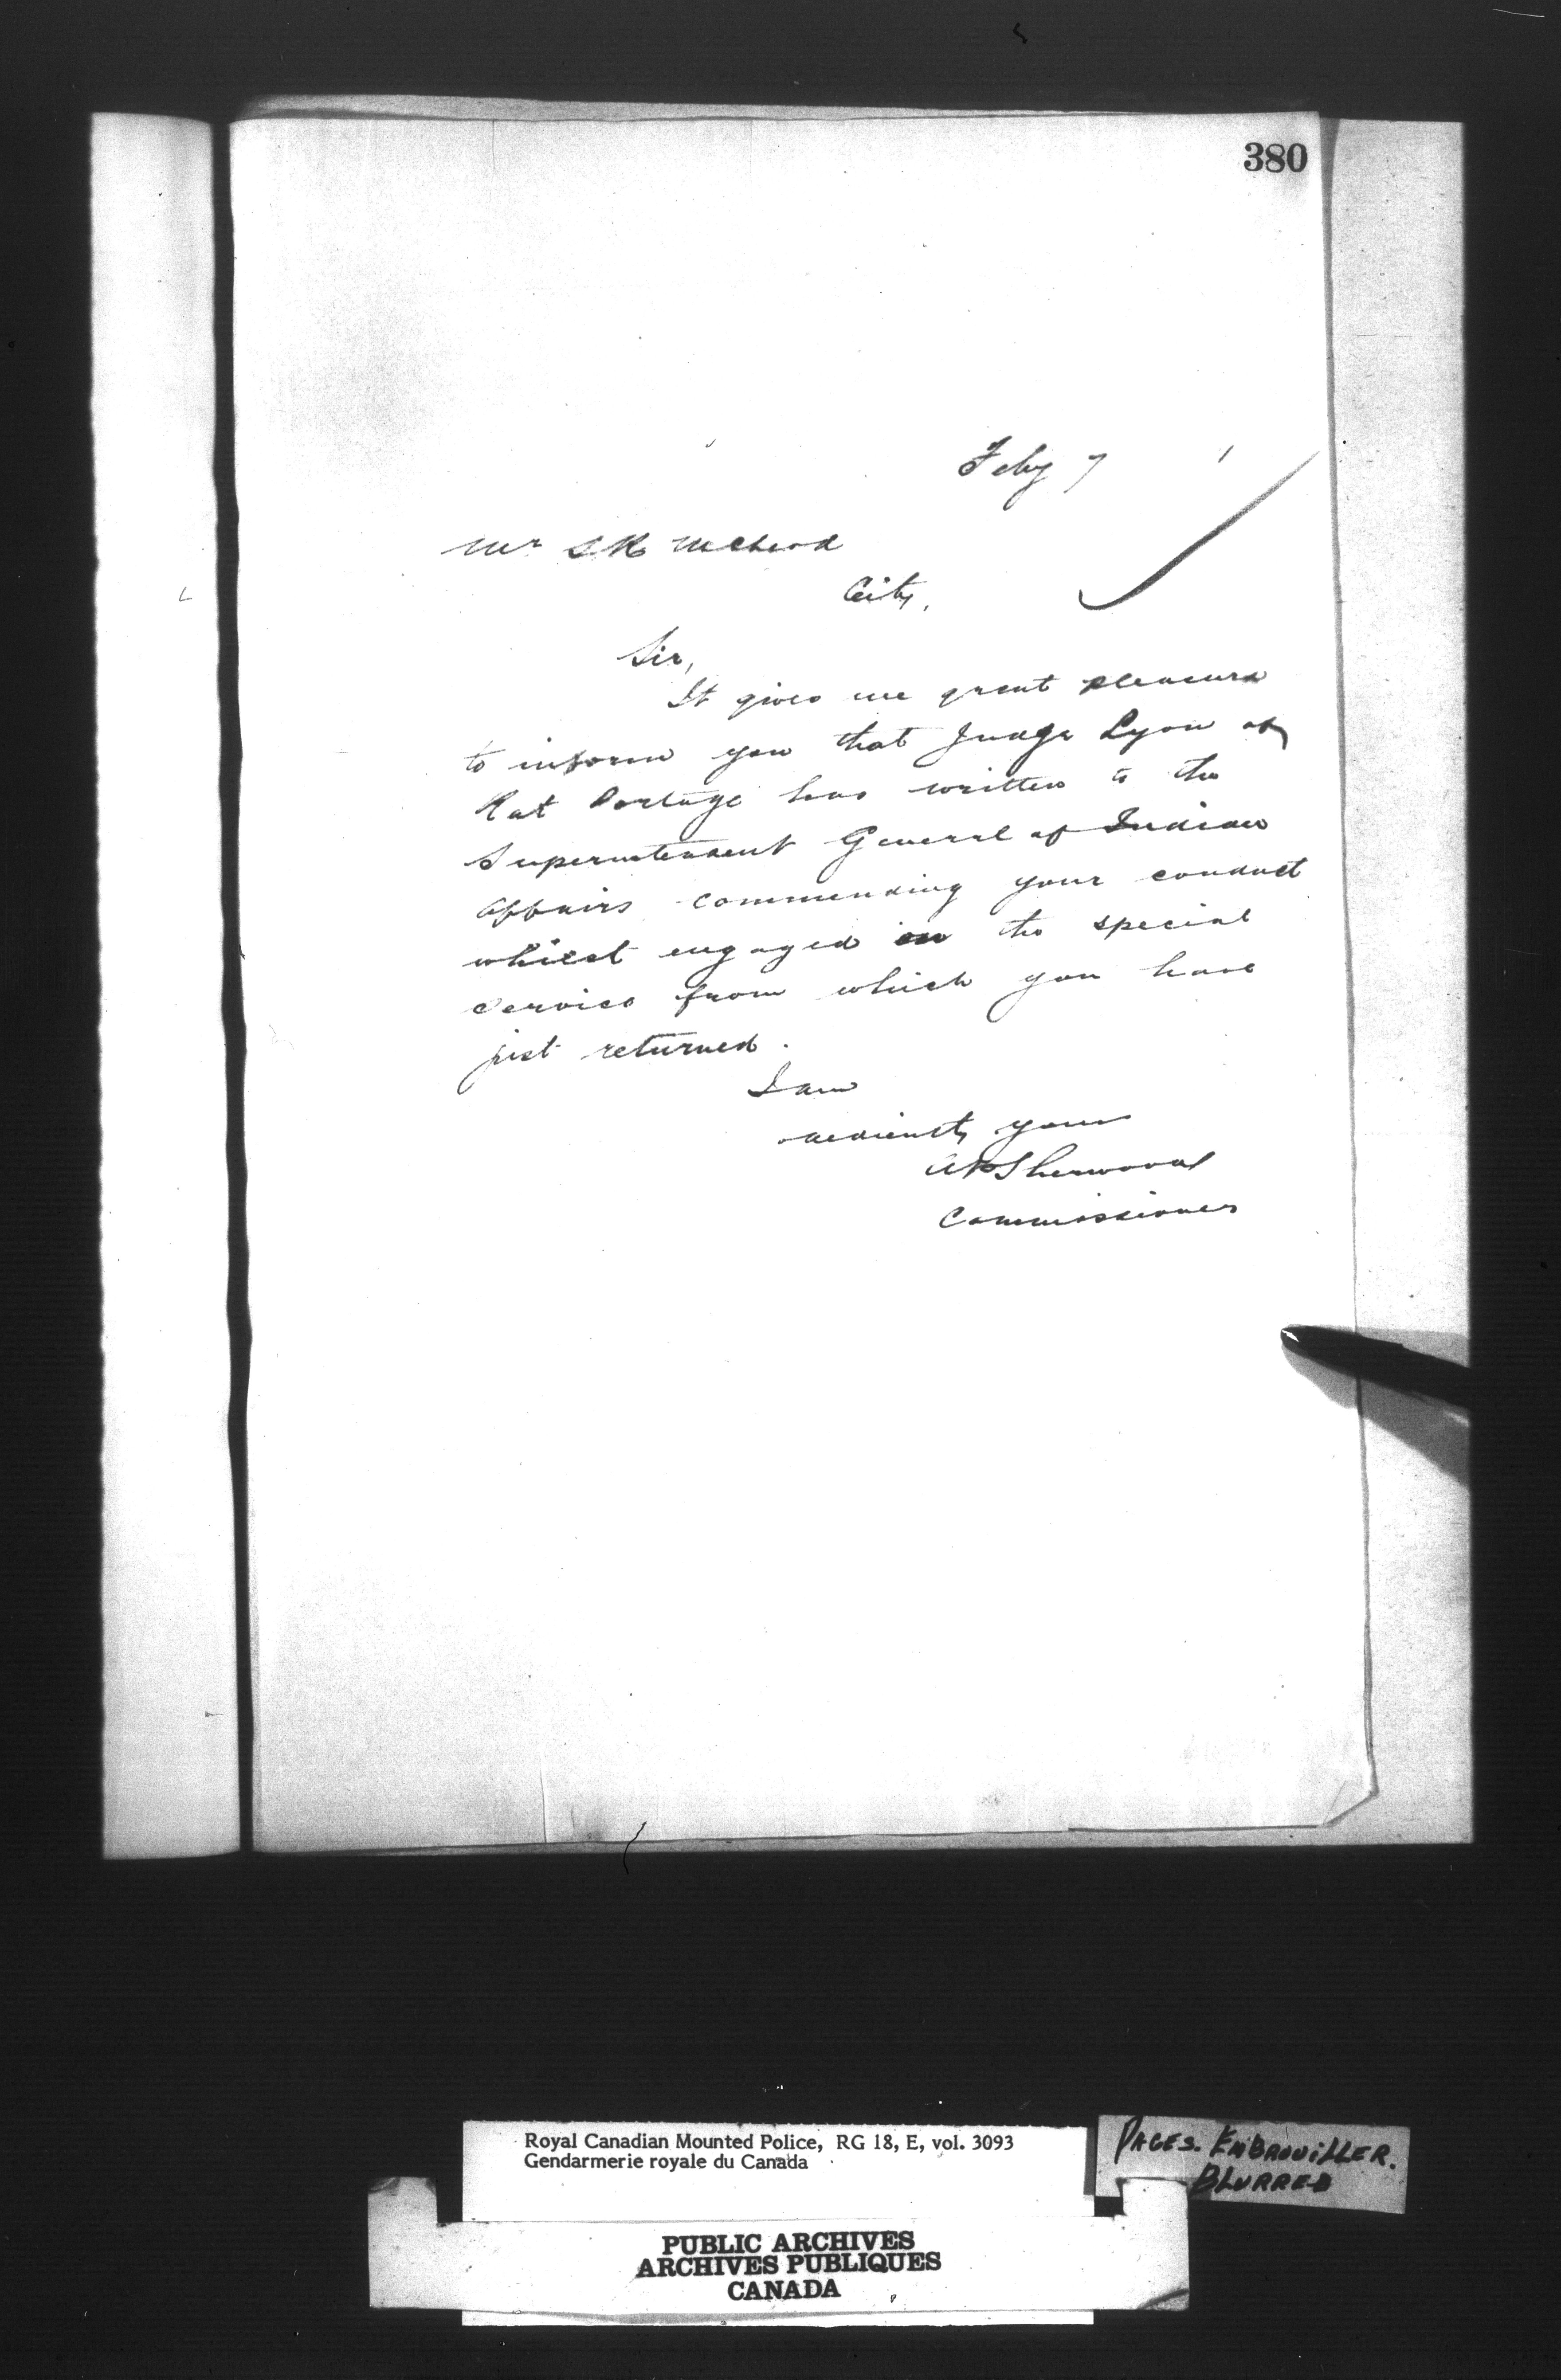 380
Feby 7 1
Mr McLeod
City,
Sir,
It gives me great pleasure
to inform you that Judge Lyon of
Rat Portage has written to the
Superintendent General of Indian
Affairs commending your conduct
whilst engaged on the special
service from which you have
just returned.
I am
yours
AP Sherwood
Commissioner
Royal Canadian Mounted Police, RG 18, E, vol. 3093
Gendarmerie royale du Canada
PAGES. EMBROUILLER.
BLURRED
PUBLIC ARCHIVES
ARCHIVES PUBLIQUES
CANADA